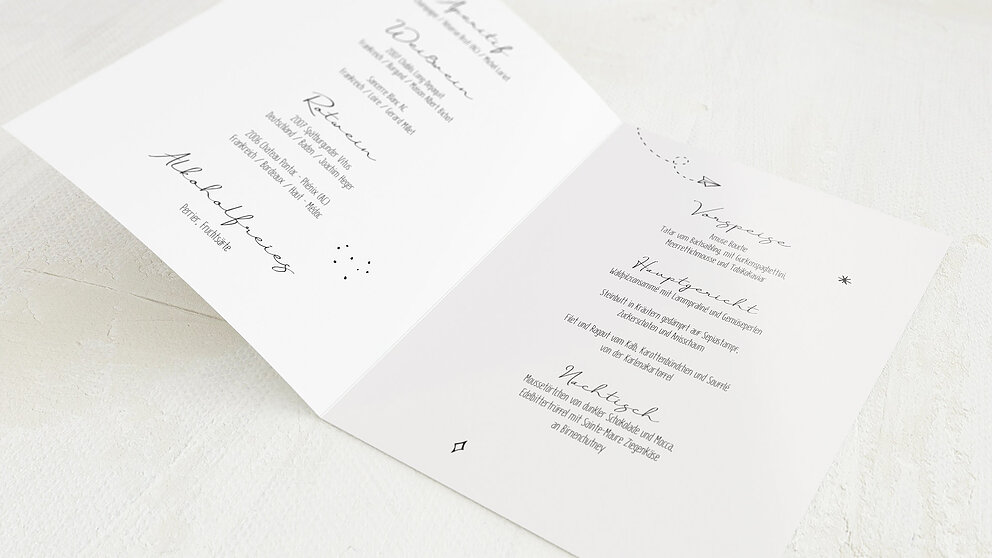 Aperitif
Champagner / Réserve Brut (AC) / Michel Loriet
Weißwein
2007 Chablis Long Depaquit
Frankreich / Burgund / Maison Albert Bichot
Sancerre Blanc AC
Frankreich / Loire / Gerard Millet
Rotwein
2007 Spätburgunder Vitus
Deutschland / Baden / Joachim Heger
2006 Chateau Pontac - Phénix (AC)
Frankreich / Bordeaux / Haut - Médoc
Alkoholfreies
Perrier, Fruchtsäfte
Vorspeise
Amuse Bouche
Tatar vom Bachsaibling, mit Gurkenspaghettini,
Meerrettichmousse und Tobikokaviar
Hauptgericht
Waldpilzconsommé mit Lammpraliné und Gemüseperlen
Steinbutt in Kräutern gedämpft auf Sepiastampf,
Zuckerschoten und Anisschaum
Filet und Ragout vom Kalb, Karottenbündchen und Soufflé
von der Kartenzkartoffel
Nachtisch
Moussetörtchen von dunkler Schokolade und Mocca,
Edelbittertrüffel mit Sainte-Maure Ziegenkäse
an Birnenchutney